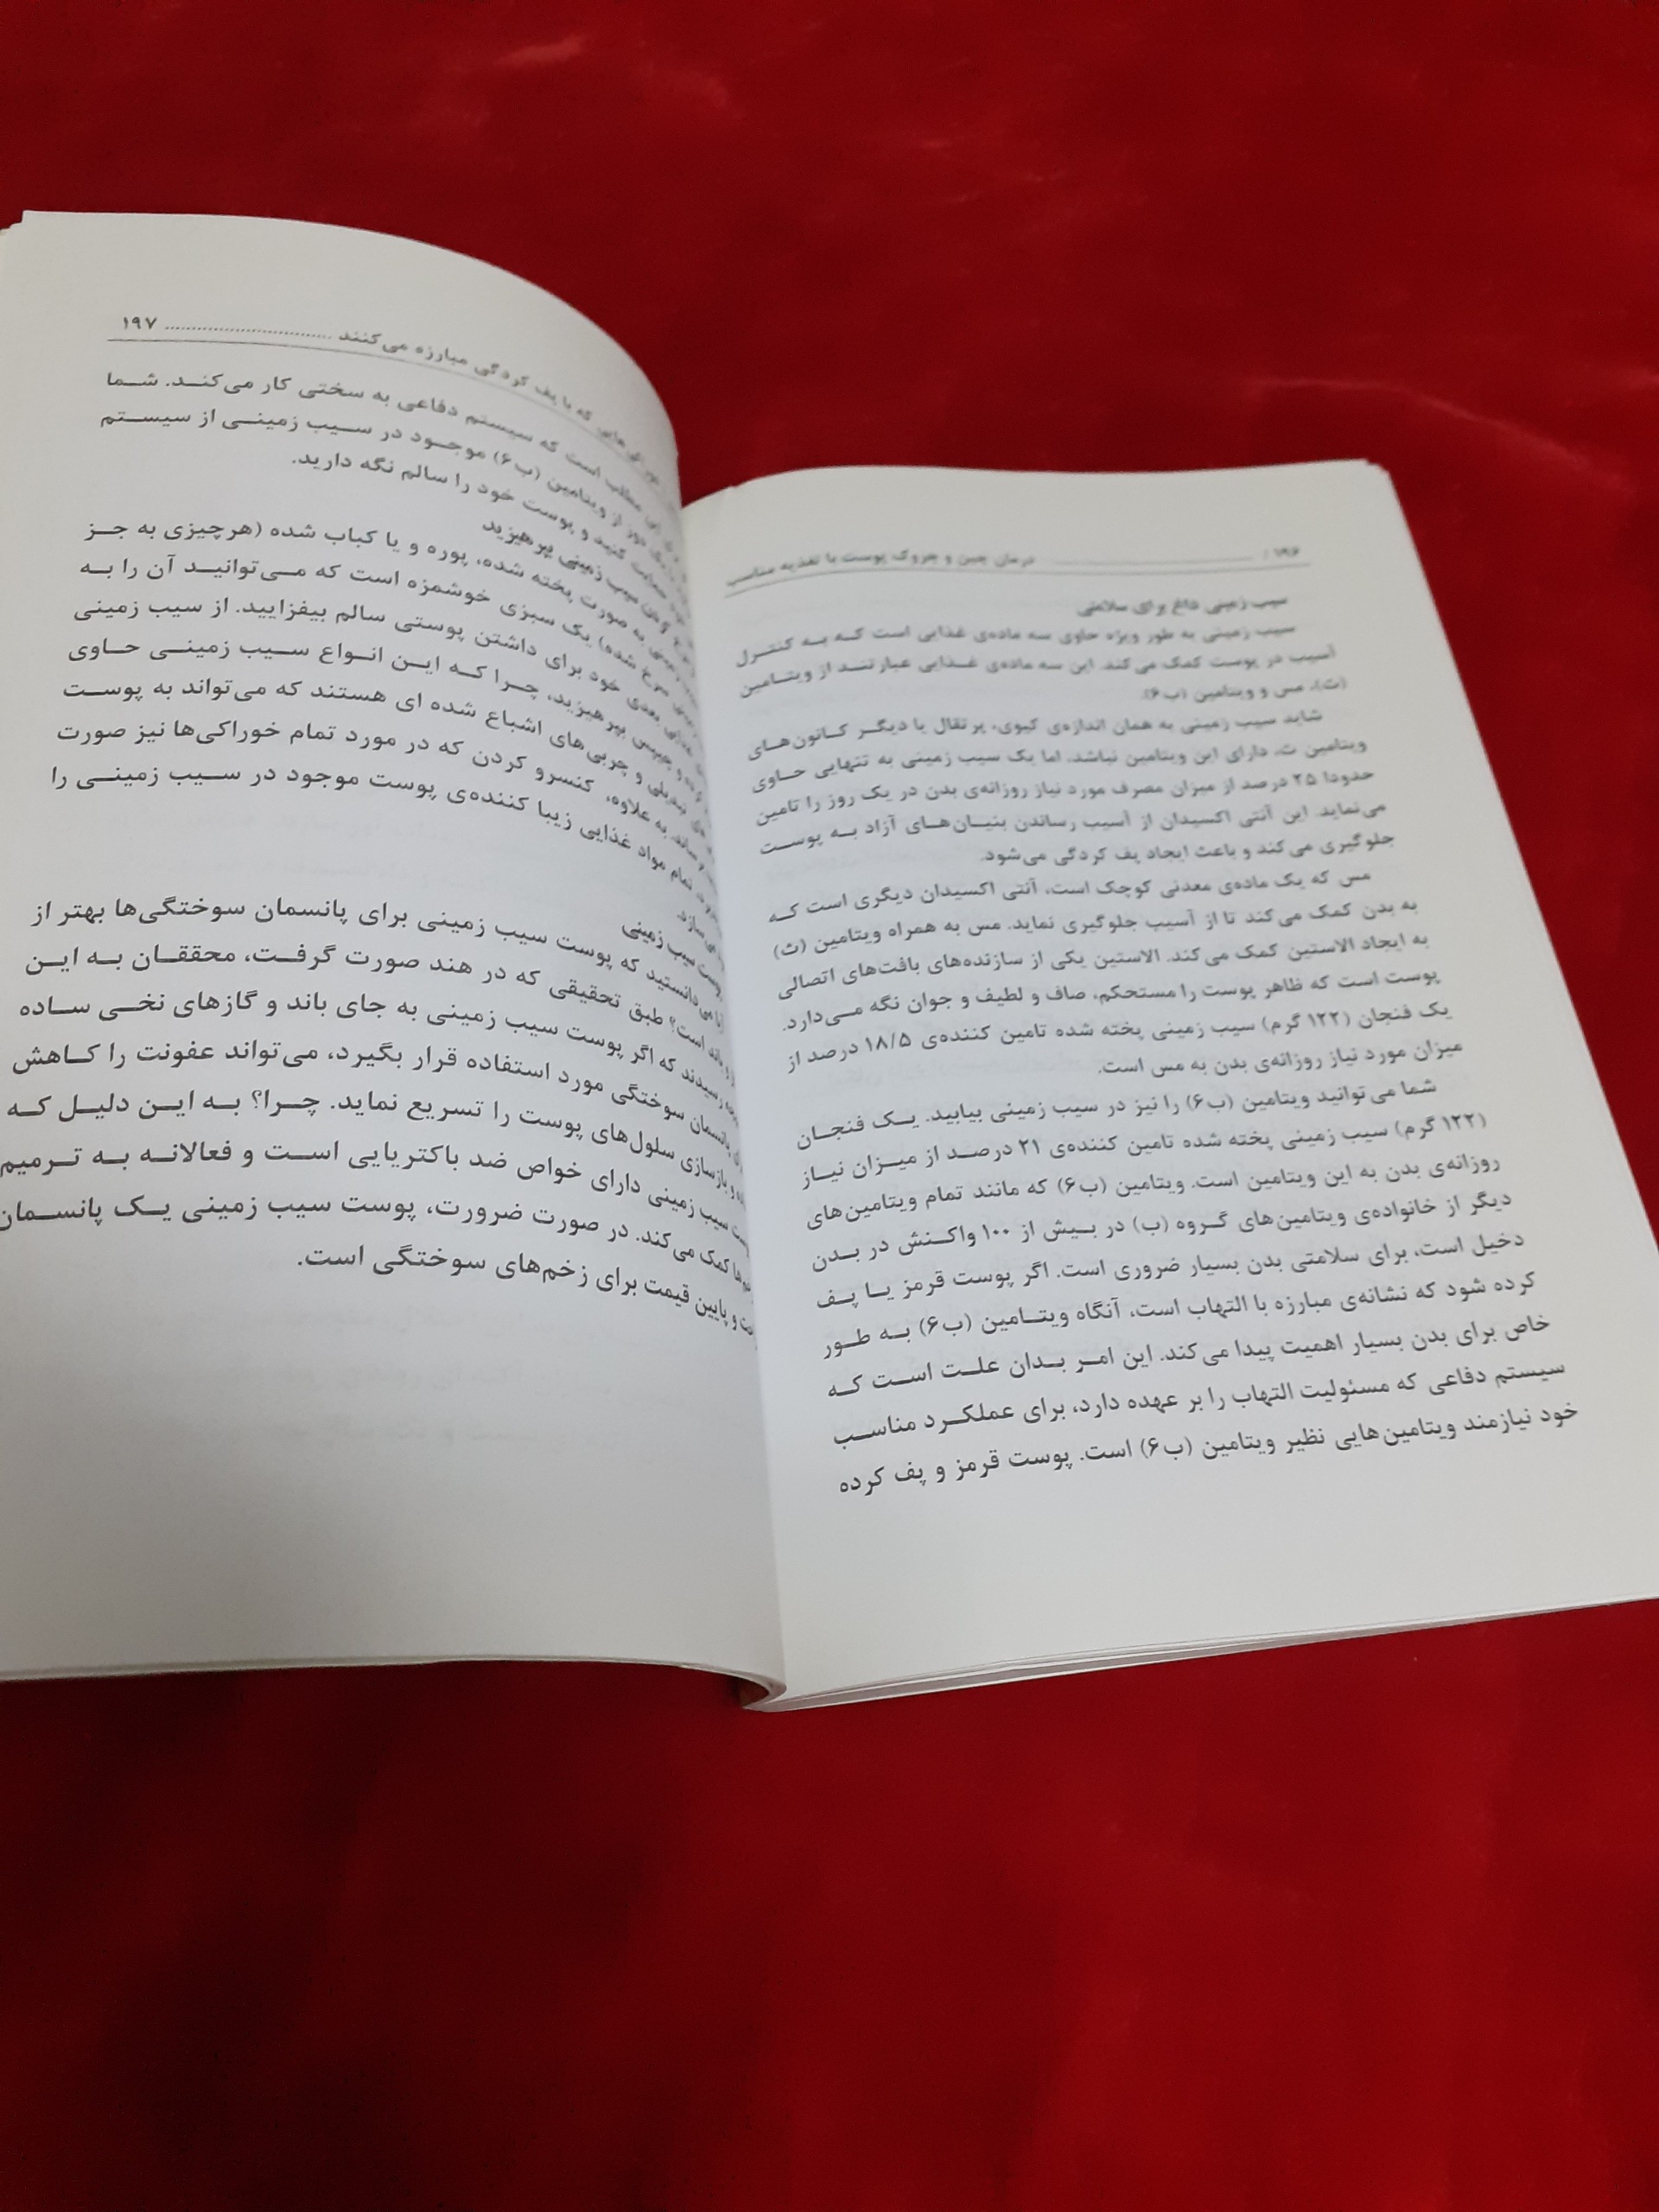 ۱۹۶ / درمان چین و چروک پوست با تغذیه مناسب
سیب‌زمینی داغ برای سلامتی
سیب زمینی به طور ویژه حاوی سه ماده‌ی غذایی است که به کنترل
آسیب در پوست کمک می‌کند. این سه ماده‌ی غذایی عبارتند از ویتامین
(ث)، مس و ویتامین (ب۶).
شاید سیب زمینی به همان اندازه‌ی کیوی، پرتقال یا دیگر کانون‌های
ویتامین ث، دارای این ویتامین نباشد، اما یک سیب زمینی به تنهایی حاوی
حدودا ۲۵ درصد از میزان مصرف مورد نیاز روزانه‌ی بدن در یک روز را تامین
می‌نماید. این آنتی اکسیدان از آسیب رساندن بنیان‌های آزاد به پوست
جلوگیری می‌کند و باعث ایجاد پف کردگی می‌شود.
مس که یک ماده‌ی معدنی کوچک است، آنتی اکسیدان دیگری است که
به بدن کمک می‌کند تا از آسیب جلوگیری نماید. مس به همراه ویتامین (ث)
به ایجاد الاستین کمک می‌کند. الاستین یکی از سازنده‌های بافت‌های اتصالی
پوست است که ظاهر پوست را مستحکم، صاف و لطیف و جوان نگه می‌دارد.
یک فنجان (۱۲۲ گرم) سیب زمینی پخته شده تامین کننده‌ی ۱۸/۵ درصد از
میزان مورد نیاز روزانه‌ی بدن به مس است.
شما می‌توانید ویتامین (ب۶) را نیز در سیب زمینی بیابید. یک فنجان
(۱۲۲ گرم) سیب زمینی پخته شده تامین کننده‌ی ۲۱ درصد از میزان نیاز
روزانه‌ی بدن به این ویتامین است. ویتامین (ب۶) که مانند تمام ویتامین‌های
دیگر از خانواده‌ی ویتامین‌های گروه (ب) در بیش از ۱۰۰ واکنش در بدن
دخیل است، برای سلامتی بدن بسیار ضروری است. اگر پوست قرمز یا پف
کرده شود که نشانه‌ی مبارزه با التهاب است، آنگاه ویتامین (ب۶) به طور
خاص برای بدن بسیار اهمیت پیدا می‌کند. این امر بدان علت است که
سیستم دفاعی که مسئولیت التهاب را بر عهده دارد، برای عملکرد مناسب
خود نیازمند ویتامین‌هایی نظیر ویتامین (ب۶) است. پوست قرمز و پف کرده
که با پف کردگی مبارزه می‌کنند ............ ۱۹۷
مطلب است که سیستم دفاعی به سختی کار می‌کند. شما
از ویتامین (ب۶) موجود در سیب زمینی از سیستم
کنید و پوست خود را سالم نگه دارید.
سیب زمینی بپرهیزید
به صورت پخته شده، پوره و یا کباب شده (هرچیزی به جز
سرخ شده) یک سبزی خوشمزه است که می‌توانید آن را به
بعدی خود برای داشتن پوستی سالم بیفزایید. از سیب زمینی
و چیپس بپرهیزید، چرا که این انواع سیب زمینی حاوی
و چربی‌های اشباع شده ای هستند که می‌تواند به پوست
به علاوه، کنسرو کردن که در مورد تمام خوراکی‌ها نیز صورت
تمام مواد غذایی زیبا کننده‌ی پوست موجود در سیب زمینی را
سازد.
پوست سیب زمینی
آیا می‌دانستید که پوست سیب زمینی برای پانسمان سوختگی‌ها بهتر از
باند است؟ طبق تحقیقی که در هند صورت گرفت، محققان به این
رسیدند که اگر پوست سیب زمینی به جای باند و گازهای نخی ساده
پانسمان سوختگی مورد استفاده قرار بگیرد، می‌تواند عفونت را کاهش
و بازسازی سلول‌های پوست را تسریع نماید. چرا؟ به این دلیل که
سیب زمینی دارای خواص ضد باکتریایی است و فعالانه به ترمیم
کمک می‌کند. در صورت ضرورت، پوست سیب زمینی یک پانسمان
و پایین قیمت برای زخم‌های سوختگی است.